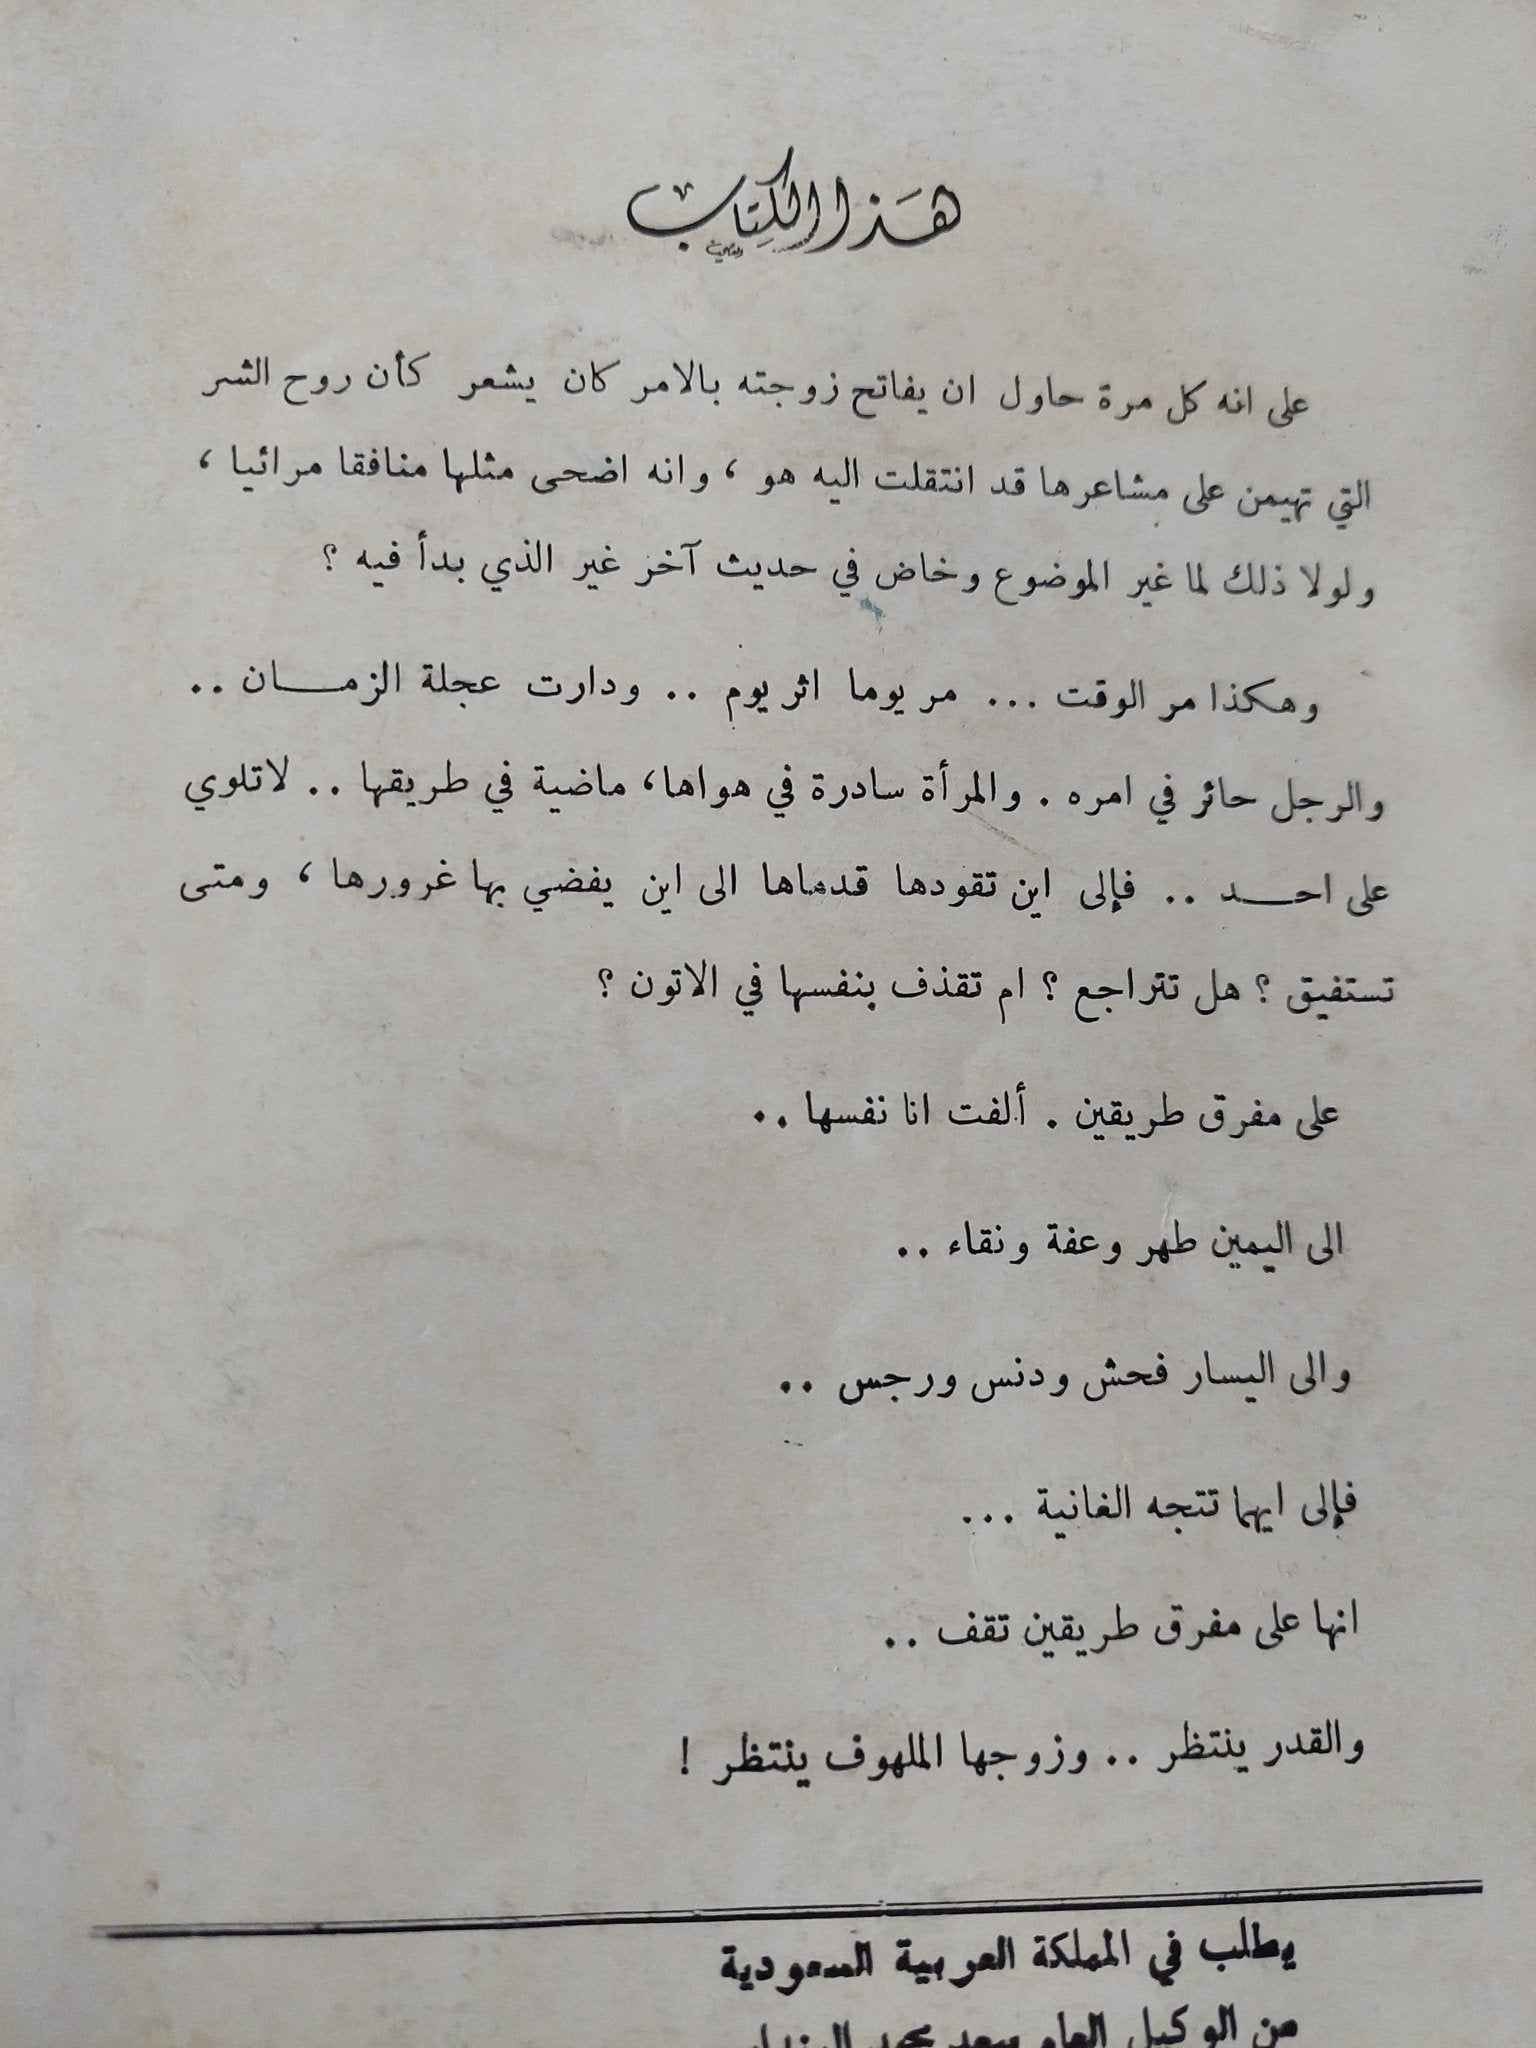 هَذا الكِتاب
على انه كل مرة حاول ان يفاتح زوجته بالامر كان يشعر كأن روح الشر
التي تهيمن على مشاعرها قد انتقلت اليه هو ، وانه اضحى مثلها منافقا مرائيا ،
ولولا ذلك لما غير الموضوع وخاض في حديث آخر غير الذي بدأ فيه ؟
وهكذا مر الوقت ... مر يوما اثر يوم .. ودارت عجلة الزمــان ..
والرجل حائر في امره . والمرأة سادرة في هواها، ماضية في طريقها .. لاتلوي
على احــد .. فإلى اين تقودها قدماها الى اين يفضي بها غرورها ، ومتى
تستفيق ؟ هل تتراجع ؟ ام تقذف بنفسها في الاتون ؟
على مفرق طريقين . ألفت انا نفسها ..
الى اليمين طهر وعفة ونقاء ..
والى اليسار فحش ودنس ورجس ..
فإلى ايهما تتجه الغانية ...
انها على مفرق طريقين تقف ..
والقدر ينتظر .. وزوجها الملهوف ينتظر !
يطلب في المملكة العربية السعودية
من الوكيل العام سعد محمد